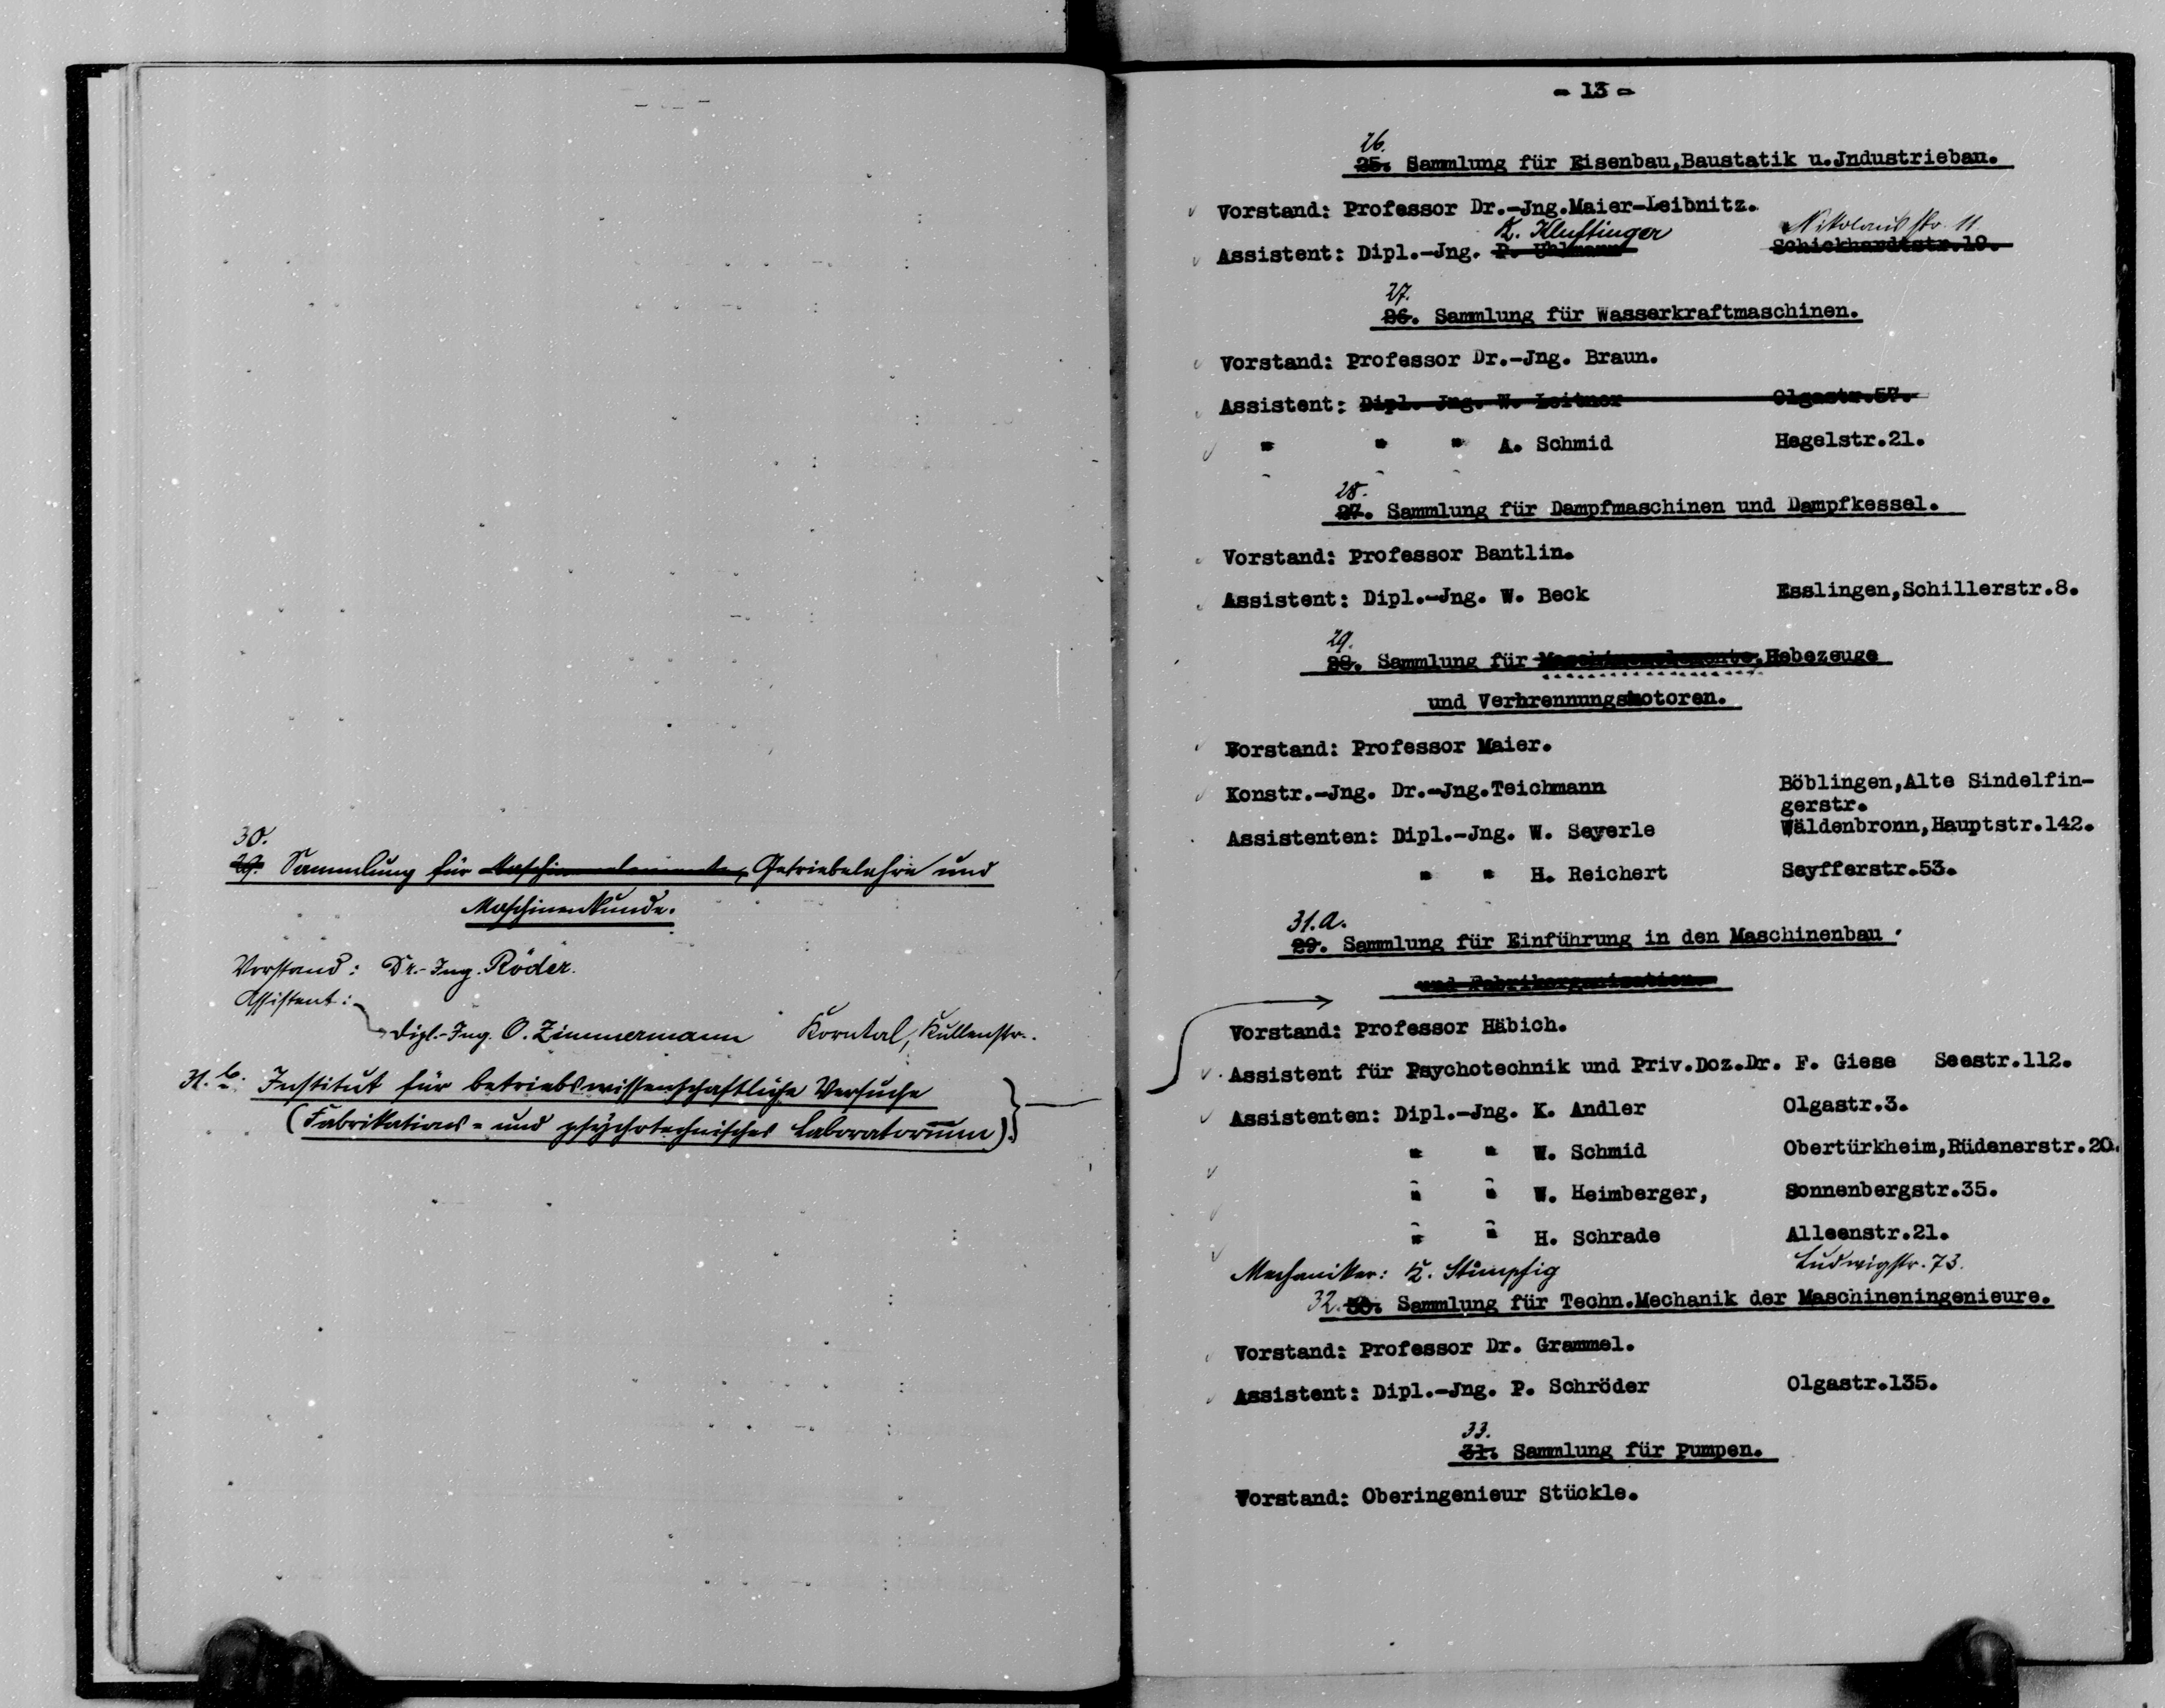 30.
29. Sammlung für Maschinenelemente, Getriebelehre und
Maschinenkunde.
Vorstand: Dr.-Ing. Röder.
Assistent:
Dipl.-Ing. O. Zimmermann Korntal, Kullenstr.
31. b. Institut für betriebswissenschaftliche Versuche
(Fabrikations- und psychotechnisches Laboratorium).
- 13 -
26.
25. Sammlung für Eisenbau,Baustatik u.Jndustriebau.
Vorstand: Professor Dr.-Jng.Maier-Leibnitz.
K. Kluftinger Nikolausstr. 11
Assistent: Dipl.-Jng. P. Uhlmann Schickhardtstr.19.
27.
26. Sammlung für Wasserkraftmaschinen.
Vorstand: Professor Dr.-Jng. Braun.
Assistent: Dipl. Jng. W. Leitner Olgastr.57.
" " " A. Schmid Hegelstr.21.
28.
27. Sammlung für Dampfmaschinen und Dampfkessel.
Vorstand: Professor Bantlin.
Assistent: Dipl.-Jng. W. Beck Esslingen,Schillerstr.8.
29.
28. Sammlung für Maschinenelemente,Hebezeuge
und Verbrennungsmotoren.
Vorstand: Professor Maier.
Konstr.-Jng. Dr.-Jng.Teichmann Böblingen,Alte Sindelfin-
gerstr.
Assistenten: Dipl.-Jng. W. Seyerle Wäldenbronn,Hauptstr.142.
" " H. Reichert Seyfferstr.53.
31.a.
29. Sammlung für Einführung in den Maschinenbau.
und Fabrikorganisation.
Vorstand: Professor Häbich.
Assistent für Psychotechnik und Priv.Doz.Dr. F. Giese Seestr.112.
Assistenten: Dipl.-Jng. K. Andler Olgastr.3.
" " W. Schmid Obertürkheim,Rüdenerstr.20.
" " W. Heimberger, Sonnenbergstr.35.
" " H. Schrade Alleenstr.21.
Mechaniker: K. Stümpfig Ludwigstr. 73.
32. 30. Sammlung für Techn.Mechanik der Maschineningenieure.
Vorstand: Professor Dr. Grammel.
Assistent: Dipl.-Jng. P. Schröder Olgastr.135.
33.
31. Sammlung für Pumpen.
Vorstand: Oberingenieur Stückle.